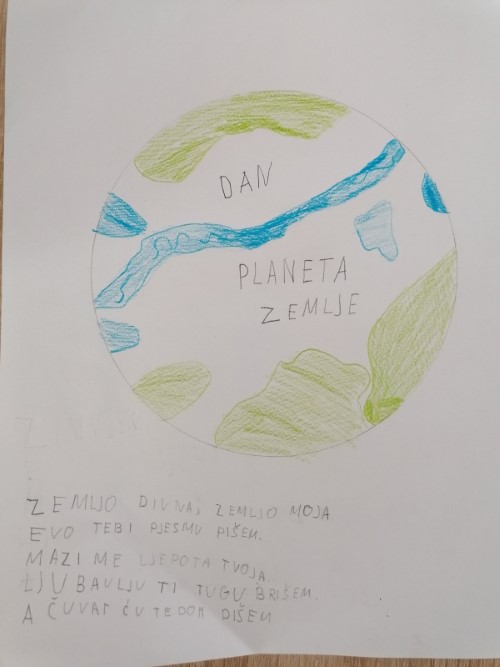 DAN
PLANETA
ZEMLJE
ZEMLJO DIVNA, ZEMLJO MOJA
EVO TEBI PJESMU PIŠEM.
MAZI ME LJEPOTA TVOJA.
LJUBAVLJU TI TUGU BRIŠEM.
A ČUVAT ĆU TE DOK DIŠEM